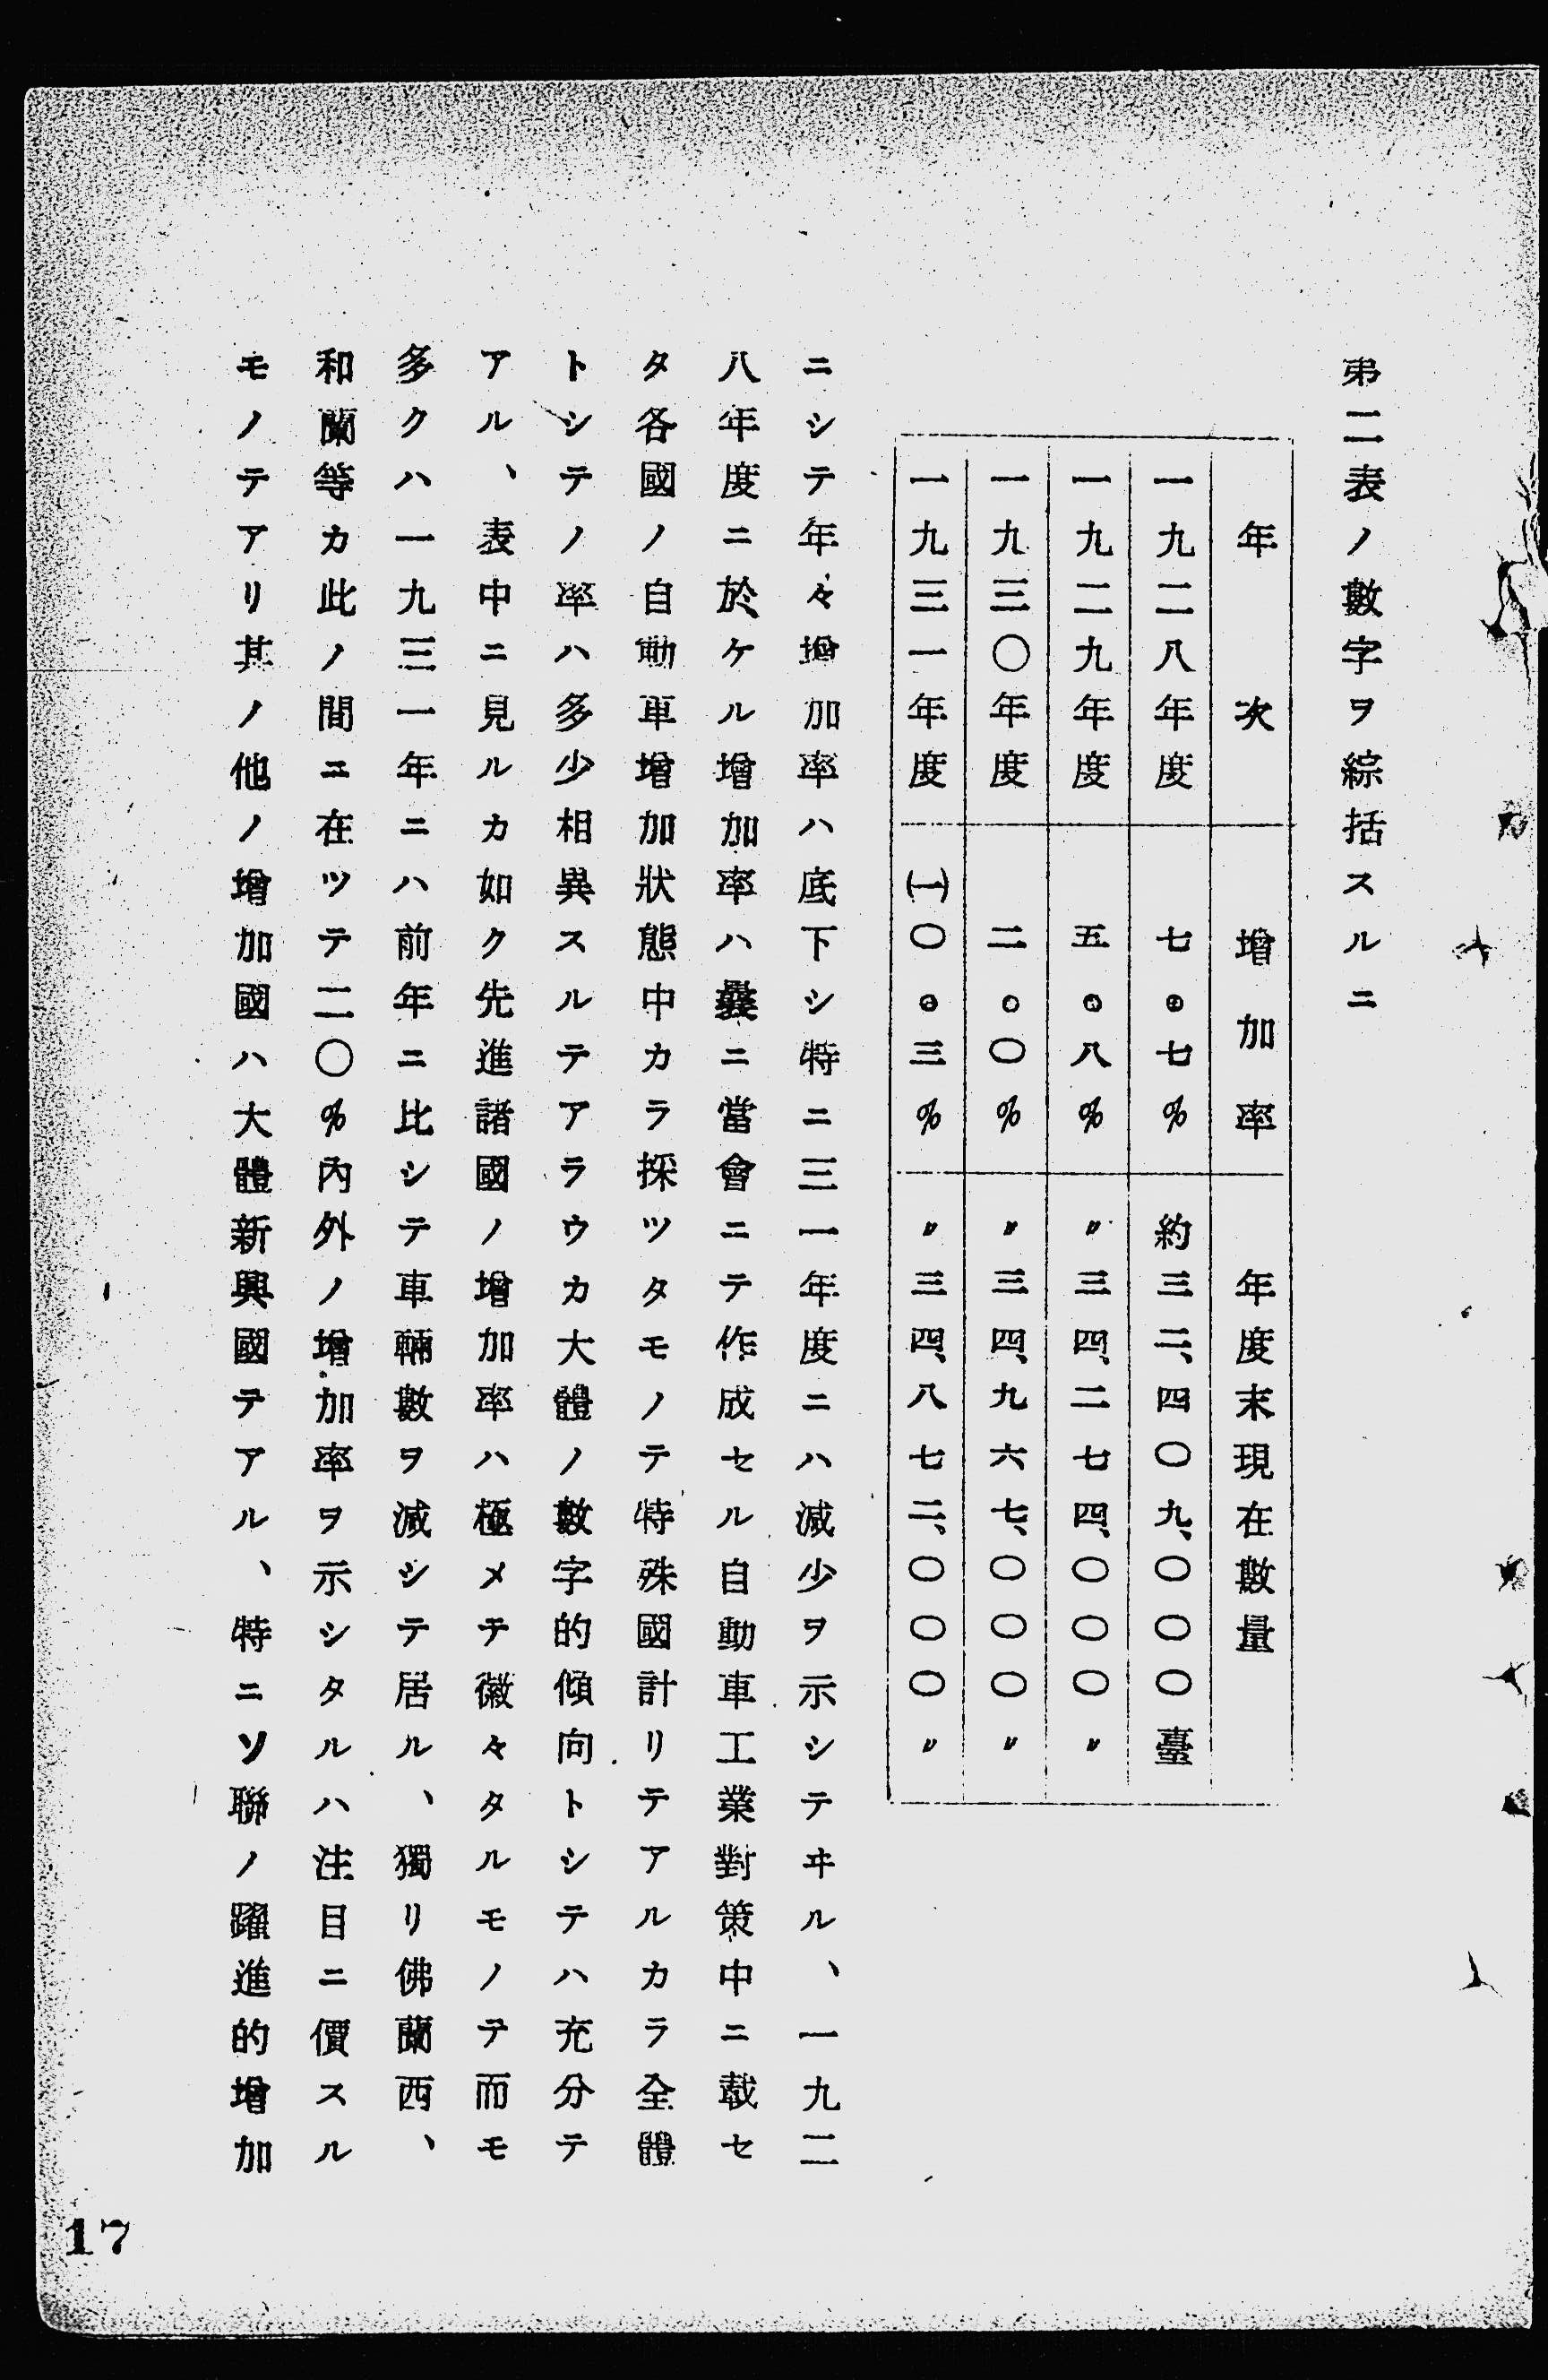 第二表ノ數字ヲ綜括スルニ
年次 增加率 年度末現在數量
一九二八年度 七。七% 約三二、四〇九、〇〇〇臺
一九二九年度 五。八% 〃三四、二七四、〇〇〇〃
一九三〇年度 二。〇% 〃三四、九六七、〇〇〇〃
一九三一年度 (一)〇。三% 〃三四、八七二、〇〇〇〃
ニシテ年々增加率ハ底下シ特ニ三一年度ニハ減少ヲ示シテヰル、一九二
八年度ニ於ケル增加率ハ曩ニ當會ニテ作成セル自動車工業對策中ニ載セ
タ各國ノ自動車增加狀態中カラ採ツタモノテ特殊國計リテアルカラ全體
トシテノ率ハ多少相異スルテアラウカ大體ノ數字的傾向トシテハ充分テ
アル、表中ニ見ルカ如ク先進諸國ノ增加率ハ極メテ微々タルモノテ而モ
多クハ一九三一年ニハ前年ニ比シテ車輛數ヲ減シテ居ル、獨リ佛蘭西、
和蘭等カ此ノ間ニ在ツテ二〇%內外ノ增加率ヲ示シタルハ注目ニ價スル
モノテアリ其ノ他ノ增加國ハ大體新興國テアル、特ニソ聯ノ躍進的增加
17